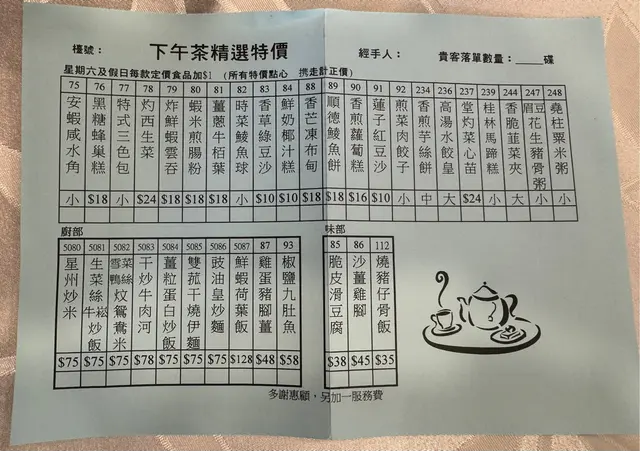 下午茶精選特價
檯號：
經手人：
貴客落單數量：_____碟
星期六及假日每款定價食品加$1 (所有特價點心 拎走計正價)
75 安蝦咸水角 小
76 黑糖蜂巢糕 $18
77 特式三色包 小
78 灼西生菜 $24
79 炸鮮蝦雲吞 $18
80 蝦米煎腸粉 $18
81 薑蔥牛栢葉 $18
82 時菜鯪魚球 小
83 香草綠豆沙 $10
84 鮮奶椰汁糕 $10
88 香芒凍布甸 $18
89 順德鯪魚餅 $18
90 香煎蘿蔔糕 $16
91 蓮子紅豆沙 $10
92 煎菜肉餃子 小
234 香煎芋絲餅 中
236 高湯水餃皇 大
237 堂灼菜心苗 $24
239 桂林馬蹄糕 小
244 香脆韮菜夾 小
247 眉豆花生豬骨粥 大
248 堯柱粟米粥 小
廚部
5080 星州炒米 $75
5081 生菜絲牛崧炒飯 $75
5082 雪菜鴨絲炆鴛鴦米 $75
5083 干炒牛肉河 $78
5084 薑粒蛋白炒飯 $75
5085 雙菰干燒伊麵 $75
5086 豉油皇炒麵 $75
5087 鮮蝦荷葉飯 $128
87 雞蛋豬腳薑 $48
93 椒鹽九肚魚 $58
味部
85 脆皮滑豆腐 $38
86 沙薑雞腳 $45
112 燒豬仔骨飯 $35
多謝惠顧，另加一服務費